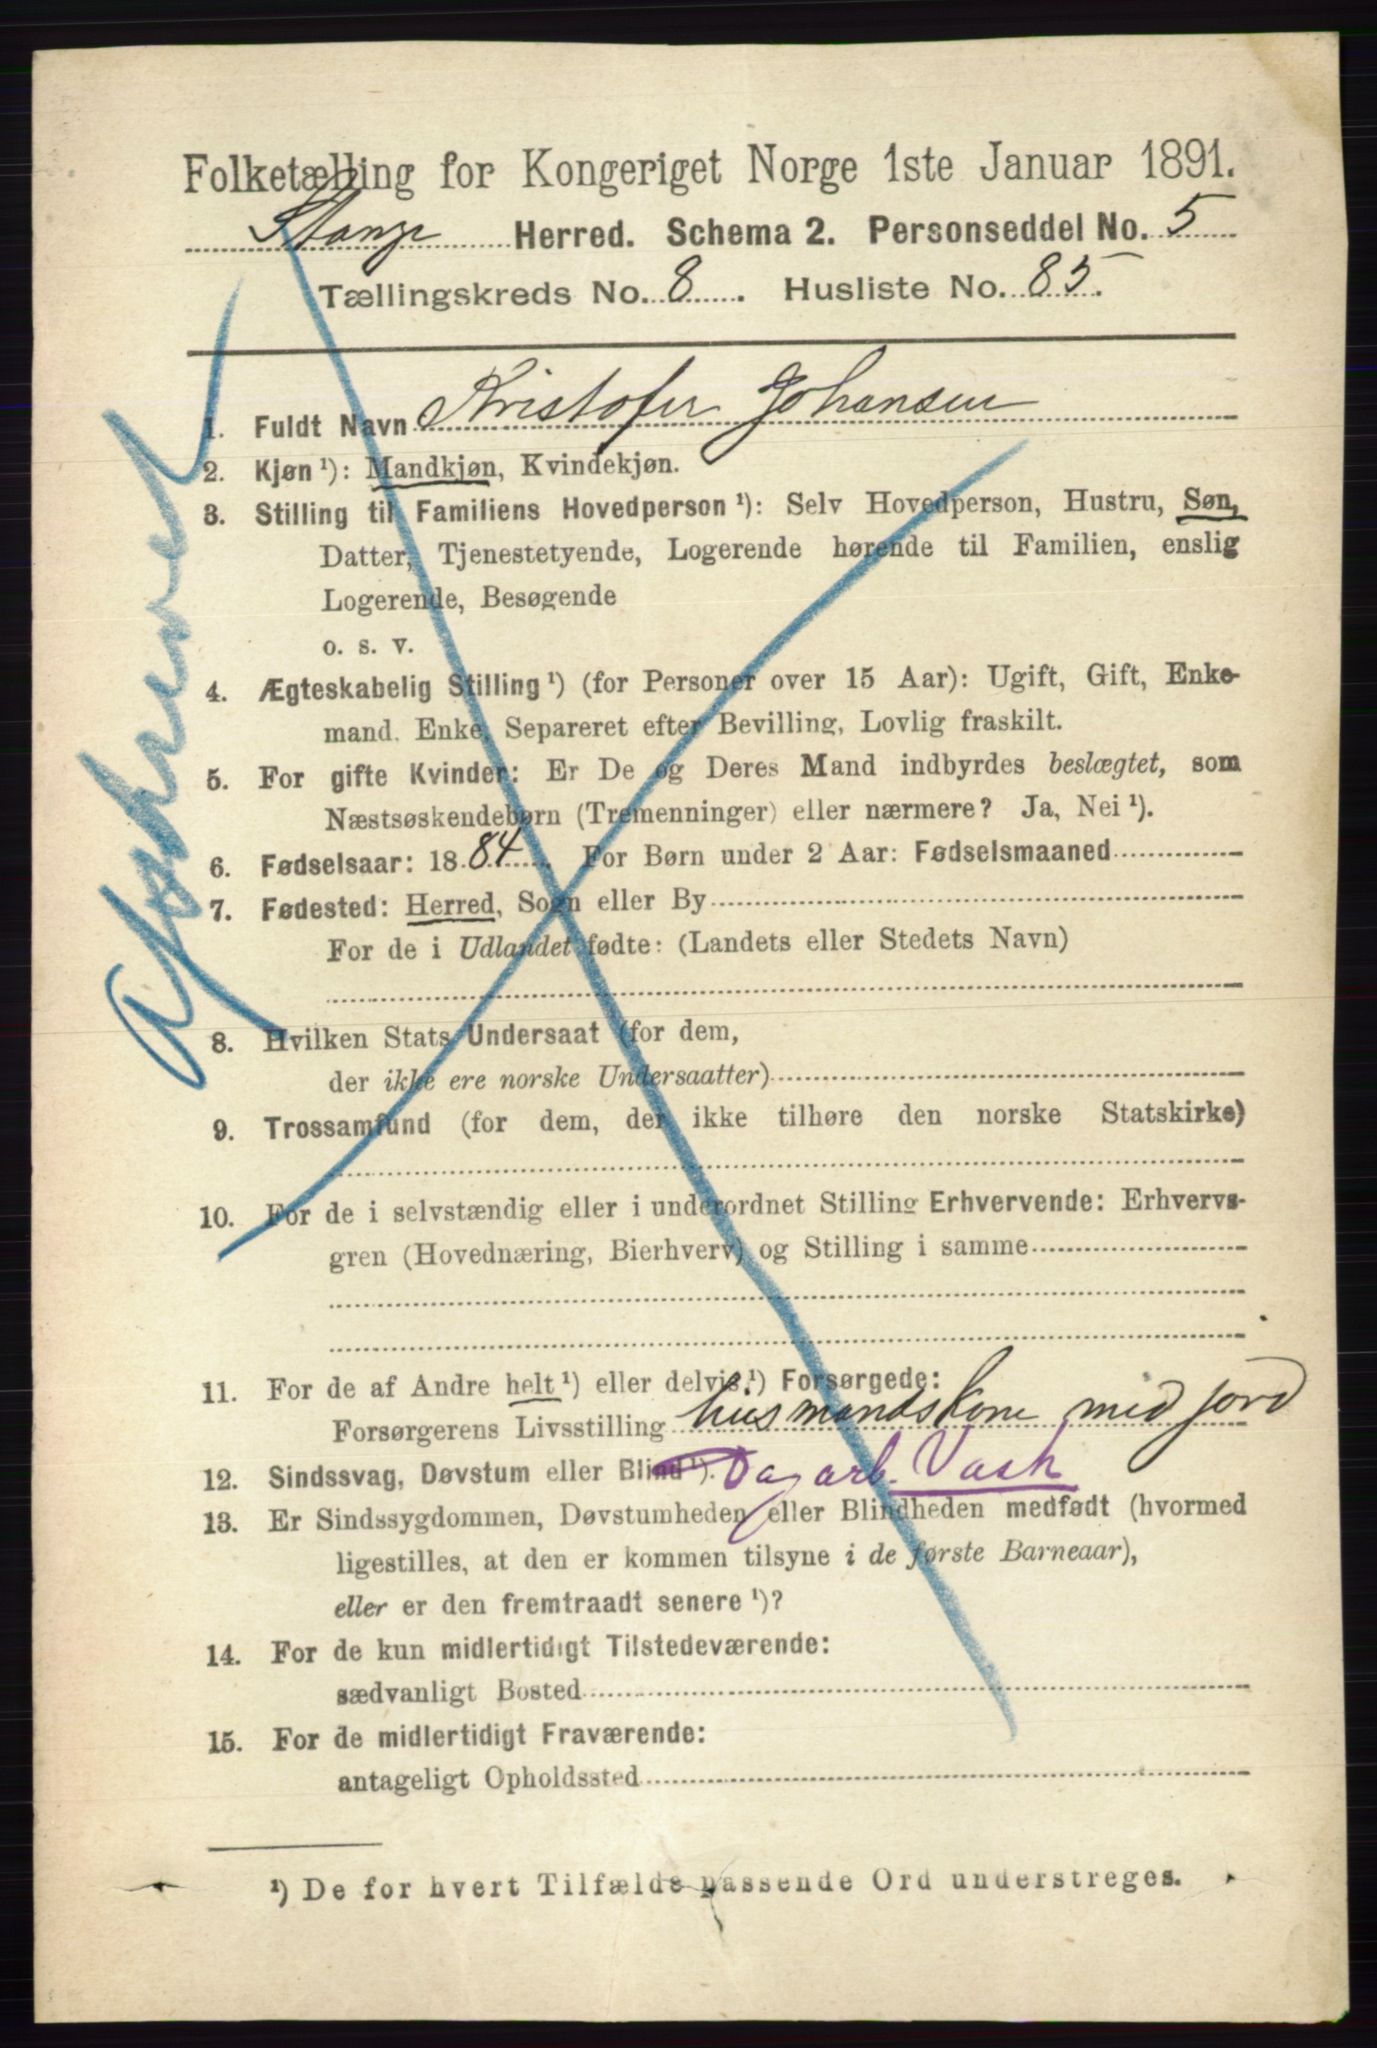 Folketælling for Kongeriget Norge 1ste Januar 1891.
Stange Herred. Schema 2. Personseddel No. 5
Tællingskreds No. 8. Husliste No. 85.
1. Fuldt Navn Kristofer Johansen
2. Kjøn ¹): Mandkjøn, Kvindekjøn.
3. Stilling til Familiens Hovedperson ¹): Selv Hovedperson, Hustru, Søn,
Datter, Tjenestetyende, Logerende hørende til Familien, enslig
Logerende, Besøgende
o. s. v.
4. Ægteskabelig Stilling ¹) (for Personer over 15 Aar): Ugift, Gift, Enke-
mand. Enke, Separeret efter Bevilling, Lovlig fraskilt.
5. For gifte Kvinder: Er De og Deres Mand indbyrdes beslægtet, som
Næstsøskendebørn (Tremenninger) eller nærmere? Ja, Nei ¹).
6. Fødselsaar: 1884. For Børn under 2 Aar: Fødselsmaaned
7. Fødested: Herred, Sogn eller By
For de i Udlandet fødte: (Landets eller Stedets Navn)
8. Hvilken Stats Undersaat (for dem,
der ikke ere norske Undersaatter)
9. Trossamfund (for dem, der ikke tilhøre den norske Statskirke)
10. For de i selvstændig eller i underordnet Stilling Erhvervende: Erhvervs-
gren (Hovednæring, Bierhverv) og Stilling i samme
11. For de af Andre helt ¹) eller delvis ¹) Forsørgede:
Forsørgerens Livsstilling husmandskone med jord
12. Sindssvag, Døvstum eller Blind ¹). Dagarb. Vask
13. Er Sindssygdommen, Døvstumheden eller Blindheden medfødt (hvormed
ligestilles, at den er kommen tilsyne i de første Barneaar),
eller er den fremtraadt senere ¹)?
14. For de kun midlertidigt Tilstedeværende:
sædvanligt Bosted
15. For de midlertidigt Fraværende:
antageligt Opholdssted
¹) De for hvert Tilfælde passende Ord understreges.